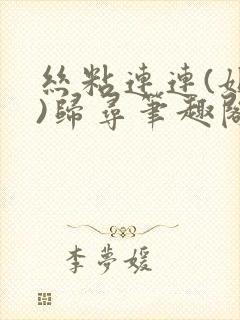 絲粘連連(
)歸尋筆趣閣
李夢媛